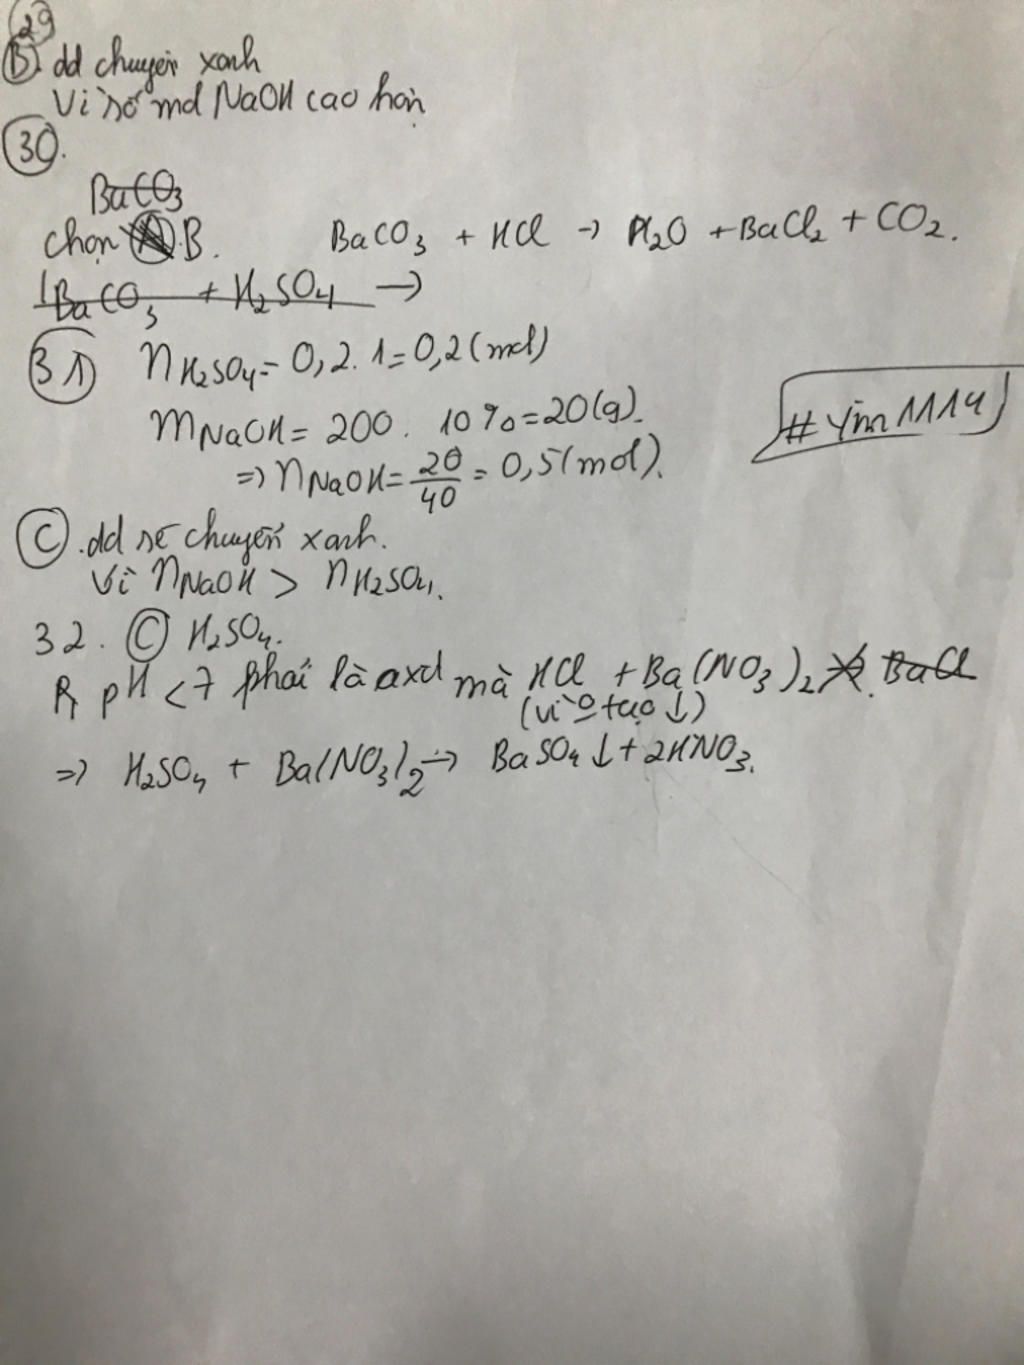 29
B. dd chuyển xanh
Vì số mol NaOH cao hơn
30.
BaCO3
chọn A B. BaCO3 + HCl → H2O + BaCl2 + CO2.
BaCO3 + H2SO4 →
31 nH2SO4 = 0,2. 1 = 0,2 (mol)
mNaOH = 200. 10% = 20(g).
#Yinn1114
=> nNaOH = 20/40 = 0,5 (mol).
C .dd sẽ chuyển xanh.
Vì nNaOH > nH2SO4.
32. C H2SO4.
R pH < 7 phải là axd mà HCl + Ba(NO3)2 X. BaCl
(vì o tạo ↓)
=> H2SO4 + Ba(NO3)2 → BaSO4 ↓ + 2HNO3.